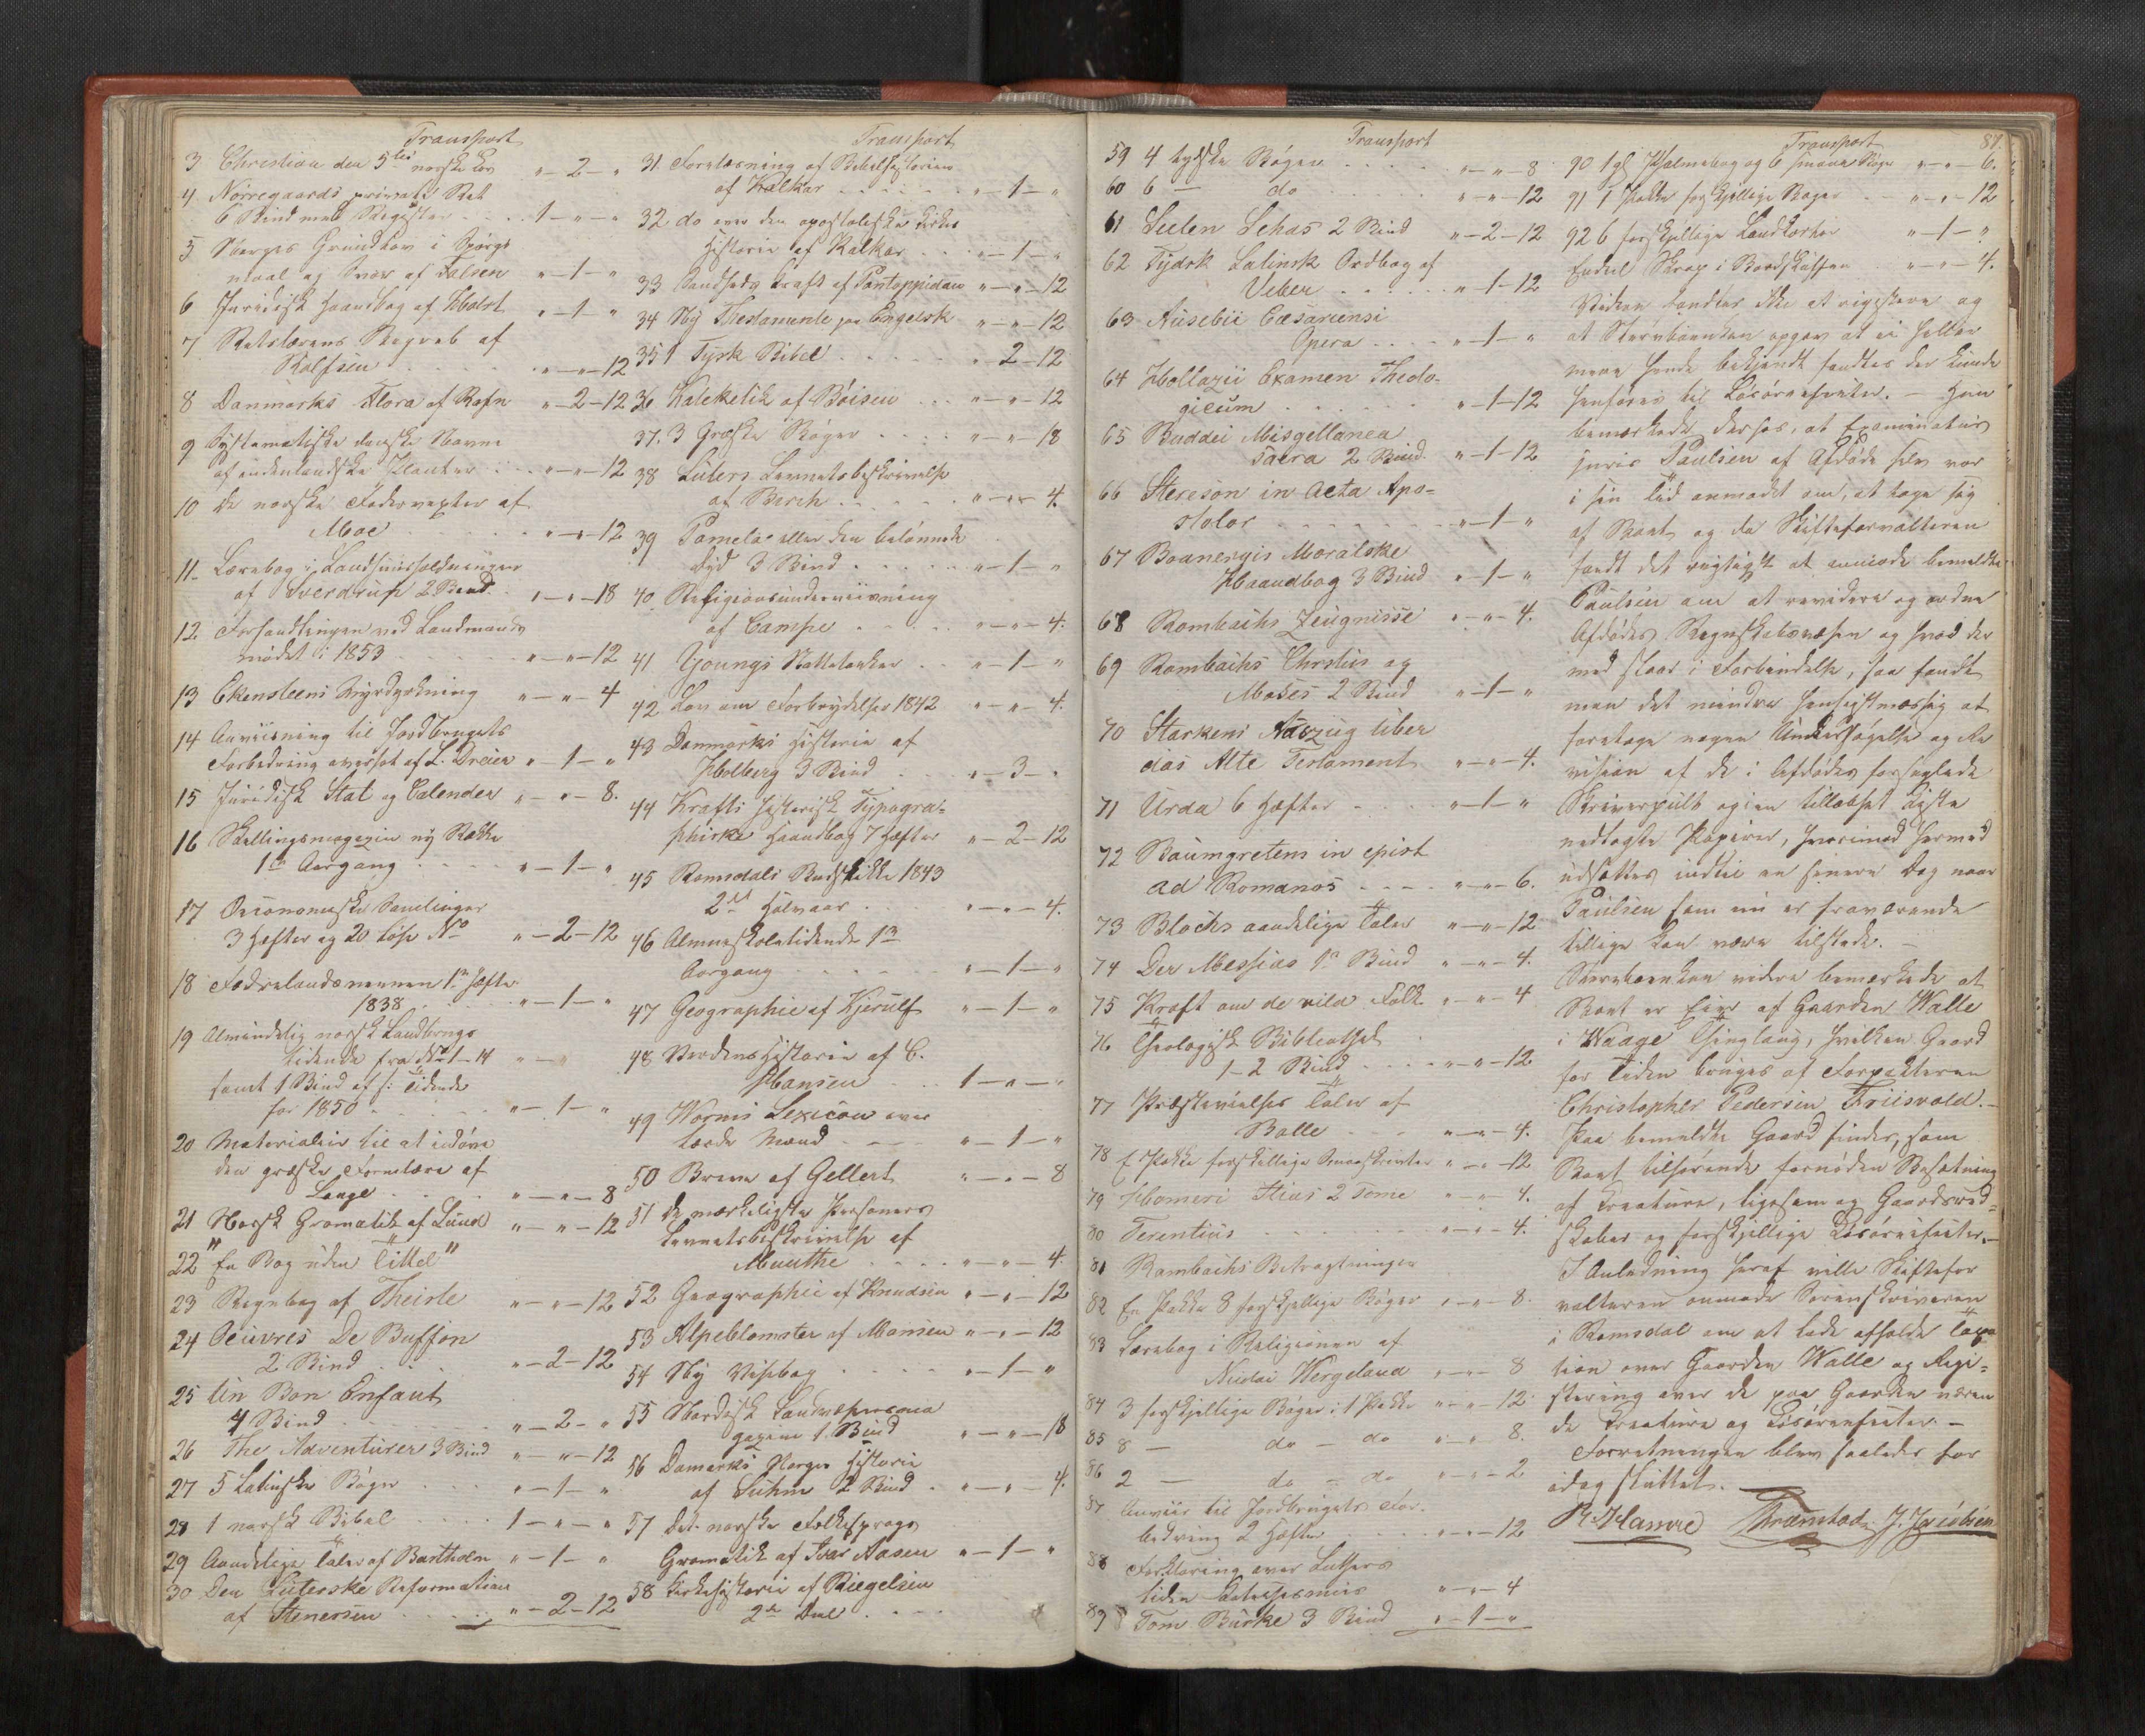 Transport
3 Christian den 5tes norske Lov " - 2 - "
4 Nørregaards private Ret
6 Bind med Register 1 - " - "
5 Norges Grundlov i Spørgs
maal og Svar af Falsen " - 1 - "
6 Juridisk Haandbog af Holst " - 1 - "
7 Retslærens Begreb af
" - " - 12
8 Danmarks Flora af Rafn " - 2 - 12
9 Systematiske danske Navne
af indenlandske Planter " - " - 12
10 De norske Fodervexter af
Moe " - " - 12
11 Lærebog i Landhuusholdninger
af Sverdrup 2 Bind " - " - 18
12 Forhandlingen ved Landmands
mødet i 1853 " - " - 12
13 Ekensteens Myrdyrkning " - " - 4
14 Anviisning til Jordbrugets
Forbedring oversat af L. Dreier " - 1 - "
15 Juridisk Stat og Calender " - " - 8.
16 Skillingsmagazin ny Række
1ste Aargang " - 1 - "
17 Oeconomiske Samlinger
3 Hefter og 20 løse No " - 2 - 12
18 Fædrelandsvennen 1ste Hefte
1838 " - 1 - "
19 Almindelig norsk Landbrugs
tidende fra No 1-14 " - " -
samt 1 Bind af s: Tidende
for 1850 " - 1 - "
20 Materialier til at indøve
den græske Formlære af
Lange " - " - 8
21 Norsk Gramatik af Lund " - " - 12
22 "En Bog uden Tittel"
23 Regnbog af Theiste " - " - 12
24 Oeuvres De Buffon
2 Bind " - 2 - 12
25 Un Bon Enfant
4 Bind " - 2 - "
26 The Adventurer 3 Bind " - " - 12
27 5 Latinske Bøger " - 1 - "
28 1 norsk Bibel 1 - " - "
29 Aandelige Taler af Bastholm " - 1 - "
30 Den Luterske Reformation
af Stenersen " - 2 - 12
Transport
31. Forelæsning af Bibelhistorien
af Kalkar " - 1 - "
32 do over den apostoliske Kirkes
Historie af Kalkar " - 1 - "
33 Sandheds Kraft af Pontoppidan " - " - 12
34 Ny Thestamente paa Engelsk " - " - 12
35 1 Tysk Bibel " - 2 - 12
36 Kateketik af Bøisen " - " - 12
37. 3 Græske Bøger " - " - 18
38 Luters Levnetsbeskrivelse
af Birch " - " - 4.
39 Pamela eller den belønnede
Dyd 3 Bind " - 1 - "
40 Religionsundervisning
af Campe " - " - 4.
41 Youngs Nattetanker " - 1 - "
42 Lov om Forbrydelser 1842 " - " - 4.
43 Danmarks Historie af
Holberg 3 Bind " - 3 - "
44 Krafts historisk Typogra-
phiske Haandbog 7 Hæfter " - 2 - 12
45 Romsdals Budstikke 1843
2det Halvaar " - " - 4.
46 Almueskoletidende 1ste
Aargang " - 1 - "
47 Geographie af Kjerulf " - 1 - "
48 Verdenshistorie af C.
Hansen 1 - " - "
49 Worms Lexicon over
lærde Mænd " - 1 - "
50 Breve af Gellert " - " - 8
51 De mærkeligste Personers
Levnetsbeskrivelse af
Munthe " - " - 4.
52 Geographie af Knudsen " - " - 12
53 Alpeblomster af Monsen " - " - 12
54 Ny Visebog " - 1 - "
55 Nordisk Landvæsensma
gazin 1. Bind " - " - 18
56 Danmarks Norges Historie
af Suhm 2 Bind " - " - 4.
57 Det norske Folkesprogs
Gramatik af Ivar Aasen " - 1 - "
58 Kirkehistorie af Riegelsen
2den Deel
87.
Transport
59 4 tydske Bøger " - " - 8
60 6 - do " - " - 12
61 Seelen Schas 2 Bind " - 2 - 12
62 Tydsk Latinsk Ordbog af
Veber " - 1 - 12
63 Ausebii Cæsariensi
Opera " - 1 - "
64 Hollazii Examen Theolo-
gicum " - 1 - 12
65 Buddei Misgellanea
sacra 2 Bind " - 1 - 12
66 Stereson in Acta Apo-
stolor " - 1 - "
67 Boanergis Moralske
Haandbog 3 Bind " - 1 - "
68 Rombachs Zeugnisse " - " - 4.
69 Rombachs Chrstus og
Moses 2 Bind " - 1 - "
70 Starkens Auszug über
das Alte Testament " - " - 4.
71 Urda 6 Hæfter " - 1 - "
72 Baumgretens in epist
ad Romanos " - " - 6.
73 Blochs aandelige Taler " - " - 12
74 Der Messias 1ste Bind " - " - 4.
75 Kraft om de vilde Folk " - " - 4
76 Theologisk Bibliothek
1-2 Bind " - " - 12
77 Præstevielses Taler af
Balle " - " - 4.
78 1 Pakke forskjellige Smaaskrivter " - " - 12
79 Homeri Ilias 2 Tome " - " - 4.
80 Terentius " - " - 4.
81 Rambachs Betragtninger
82 En Pakke 8 forskjellige Bøger " - " - 8.
83 Lærebog i Religionen af
Nicolai Wergeland " - " - 8
84 3 forskjellige Bøger i 1 Pakke " - " - 12.
85 8 - do - do " - " - 8.
86 2 - do - do " - " - 2
87 Anviis til Jordbrugets For-
bedring 2 Hæfter " - " - 12
88 Forklaring over Luthers
liden Katechismus " - " - 4
89 Tom Burke 3 Bind " - 1 - "
Transport
90 1 gl Psalmebog og 6 smaae Bøger " - " - 6.
91 1 Pakke forskjellige Bøger " - " - 12
92 6 forskjellige Landkorter " - 1 - "
Endeel Skrap i Bordskuffen " - " - 4.
Videre fandtes ikke at registrere og
at Stervboenken opgav at ei heller
mere hende bekjendt fandtes der kunde
henføres til Løsøreeffecter. - Hun
bemærkede derhos, at Examinatus
juris Paulsen af Afdøde selv var
i sin Tid anmodet om, at tage sig
af Boet og da Skifteforvalteren
fandt det rigtigst at anmode bemeldte
Paulsen om at revidere og ordne
Afdødes Regnskabsvæsen og hvad der
med staar i Forbindelse, saa fandt
man det mindre hensigtmæssig at
foretage nogen Undersøgelse og Re
vision af de i Afdødes forseglede
Skriverpult og i en tillaaset Kiste
nedlagte Papirer, hvorimod hermed
udsættes indtil en senere Dag naar
Paulsen som nu er fraværende
tillige kan være tilstede. -
Stervboenken videre bemærkede at
Boet er Eier af Gaarden Walle
i Waage Thinglaug, hvilken Gaard
for Tiden bruges af Forpakteren
Christopher Pedersen Friisvold. -
Paa bemeldte Gaard findes, som
Boet tilhørende fornøden Besætning
af Creature, ligesom og Gaardsred-
skaber og forskjellige Løsøreeffecter. -
I Anledning heraf ville Skiftefor
valteren anmode Sorenskriveren
i Romsdal om at lade afholde Taxa
tion over Gaarden Walle og Regi-
strering over de paa Gaarden væren
de Kreature og Løsøreeffecter. -
Forretningen blev saaledes for
idag sluttet. -
R Hamre Thromstad J. Jacobsen